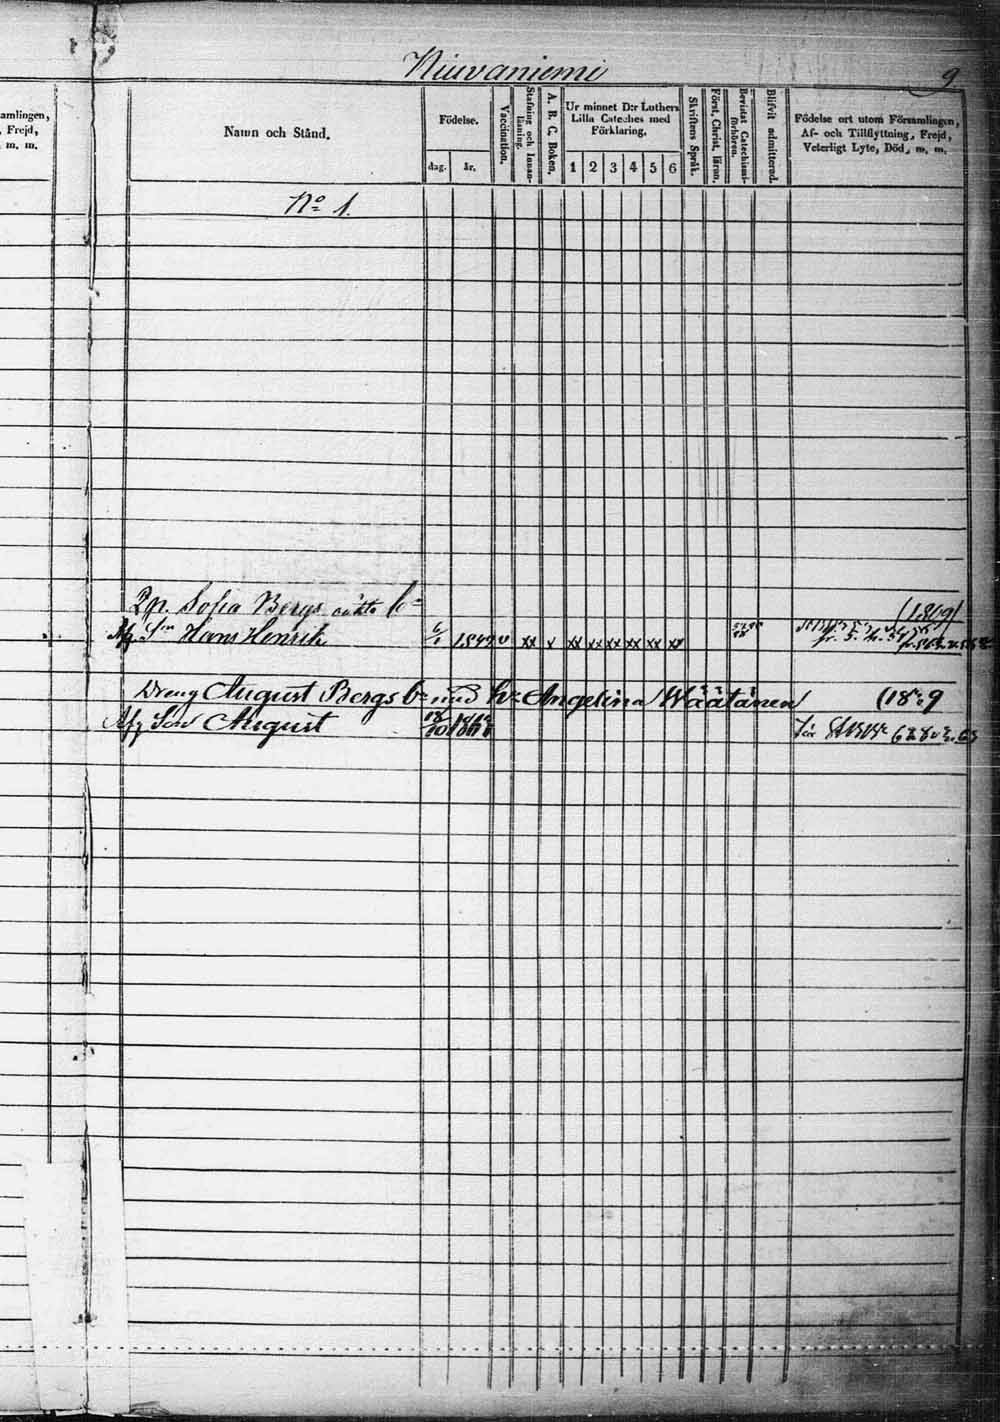 Niuvaniemi
9
amlingen,
Frejd,
m. m.
Namn och Stånd.
Födelse.
dag.
år.
Vaccination.
Stafning och Innan-
läsning.
A. B. C. Boken.
Ur minnet D:r Luthers
Lilla Cateches med
Förklaring.
1 2 3 4 5 6
Skriftens Språk.
Först, Christ, läran.
Bevistat Catechismi-
förhören.
Blifvit admitterad.
Födelse ort utom Församlingen,
Af- och Tillflyttning, Frejd,
Veterligt Lyte, Död, m. m.
No 1.
Sofia Bergs
Hans Henrik xx x xx xx xx xx xx xx
Dreng August Bergs med Angelina Wäätänen
Son August 18/10